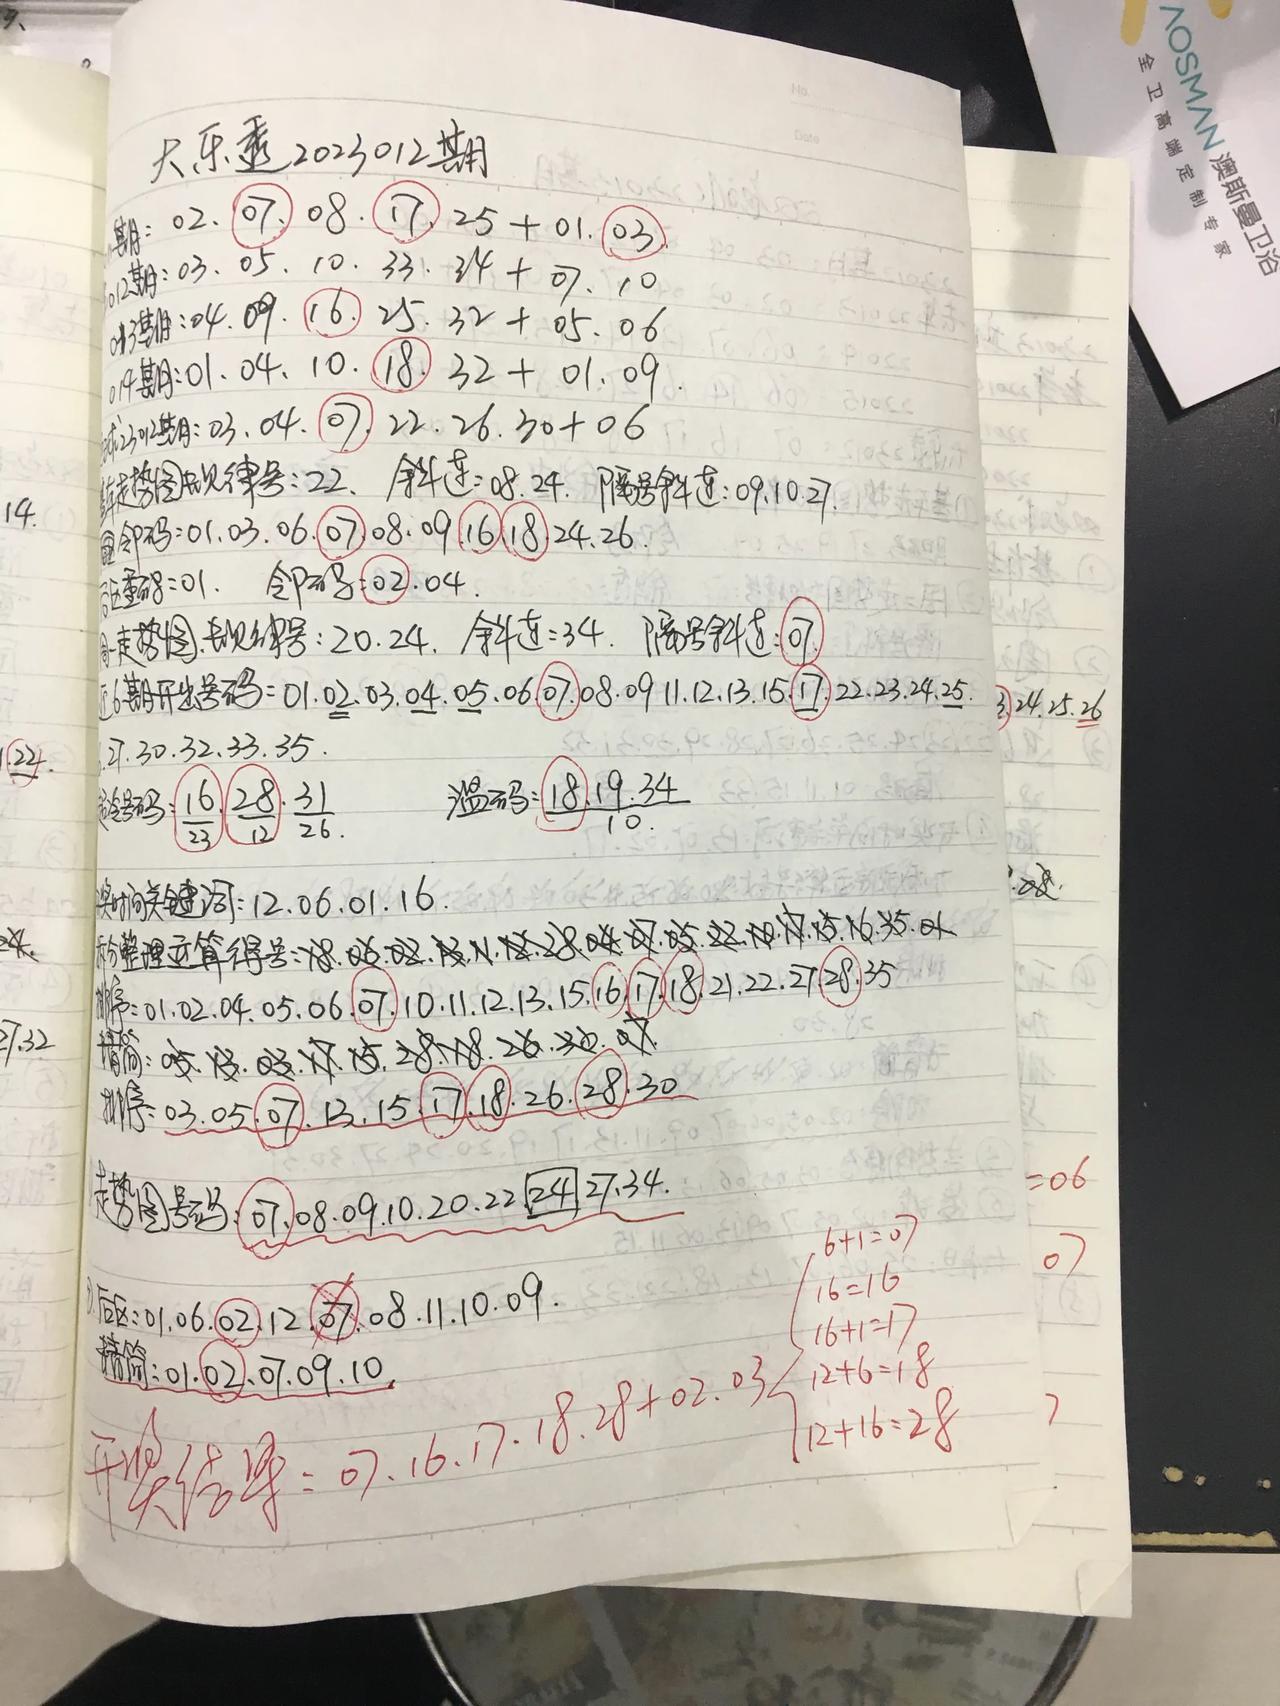 大乐透2023012期
期: 02. 07. 08. 17. 25 + 01. 03
012期: 03. 05. 10. 33. 34 + 07. 10
013期: 04. 09. 16. 25. 32 + 05. 06
014期: 01. 04. 10. 18. 32 + 01. 09.
23012期: 03. 04. 07. 22. 26. 30 + 06
走势图规律号: 22. 斜连: 08. 24. 隔号斜连: 09. 10. 27.
邻码: 01. 03. 06. 07. 08. 09. 16. 18. 24. 26.
后区重码: 01. 邻码: 02. 04.
周一走势图规律号: 20. 24. 斜连: 34. 隔号斜连: 07
近6期开出号码: 01. 02. 03. 04. 05. 06. 07. 08. 09 11. 12. 13. 15. 17. 22. 23. 24. 25.
27. 30. 32. 33. 35.
号码: 16/23 . 28/12 . 31/26. 温码: 18. 19. 34 / 10.
奖时间关键词: 12. 06. 01. 16.
整理运算得号: 18. 06. 02. 13. 11. 12. 28. 04. 07. 05. 22. 10. 17. 15. 16. 35. 01
排序: 01. 02. 04. 05. 06. 07. 10. 11. 12. 13. 15. 16. 17. 18. 21. 22. 27. 28. 35
精简: 05. 13. 03. 17. 15. 28. 18. 26. 30. 07.
排序: 03. 05. 07. 13. 15. 17. 18. 26. 28. 30
走势图号码: 07. 08. 09. 10. 20. 22. 24. 27. 34.
后区: 01. 06. 02. 12. 07. 08. 11. 10. 09.
精简: 01. 02. 07. 09. 10.
6+1=07
16=16
16+1=17
12+6=18
12+16=28
开奖结果: 07. 16. 17. 18. 28 + 02. 03
14.
22.
27.32
24.25.26
.08.
=06
07
7
No.
Date
AOSMAN 澳斯曼卫浴
全卫高端定制专家